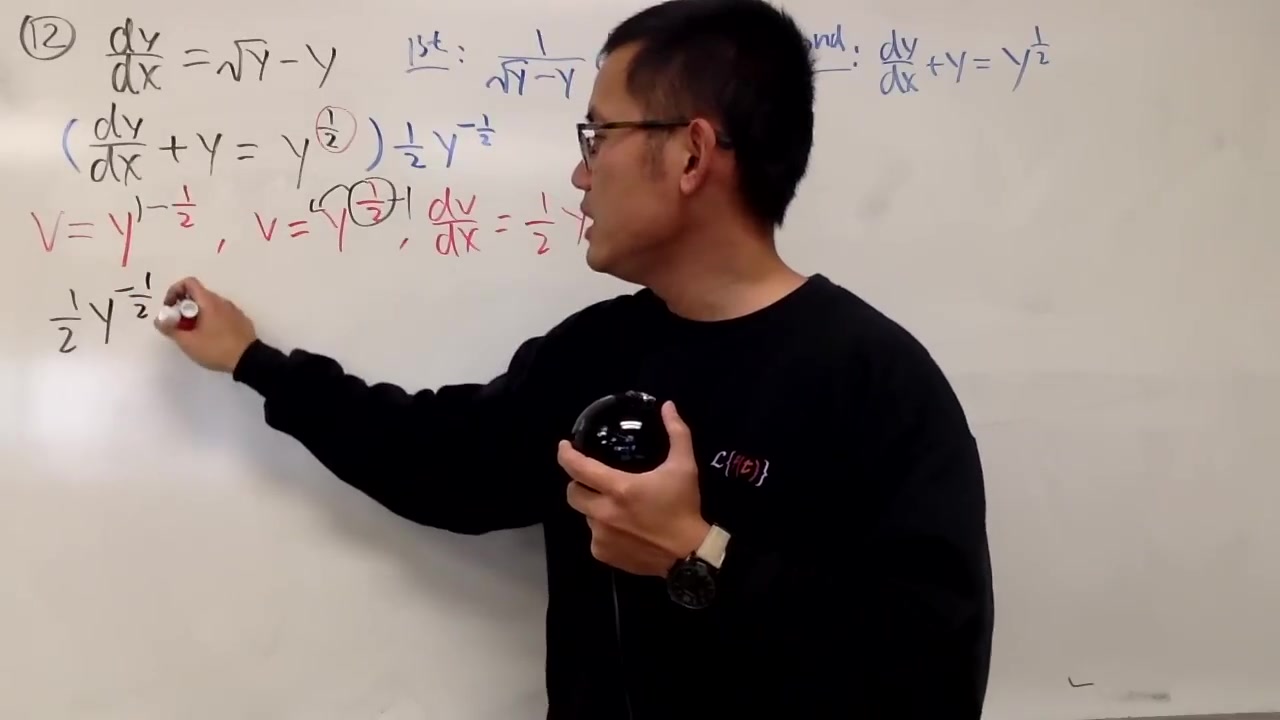 ⑫ dy/dx = √y - y 1st: 1/(√y - y) nd: dy/dx + y = y^(1/2)
(dy/dx + y = y^(1/2)) 1/2 y^(-1/2)
v = y^(1-1/2), v = y^(1/2)-1, dv/dx = 1/2 y
1/2 y^(-1/2)
L{f(t)}